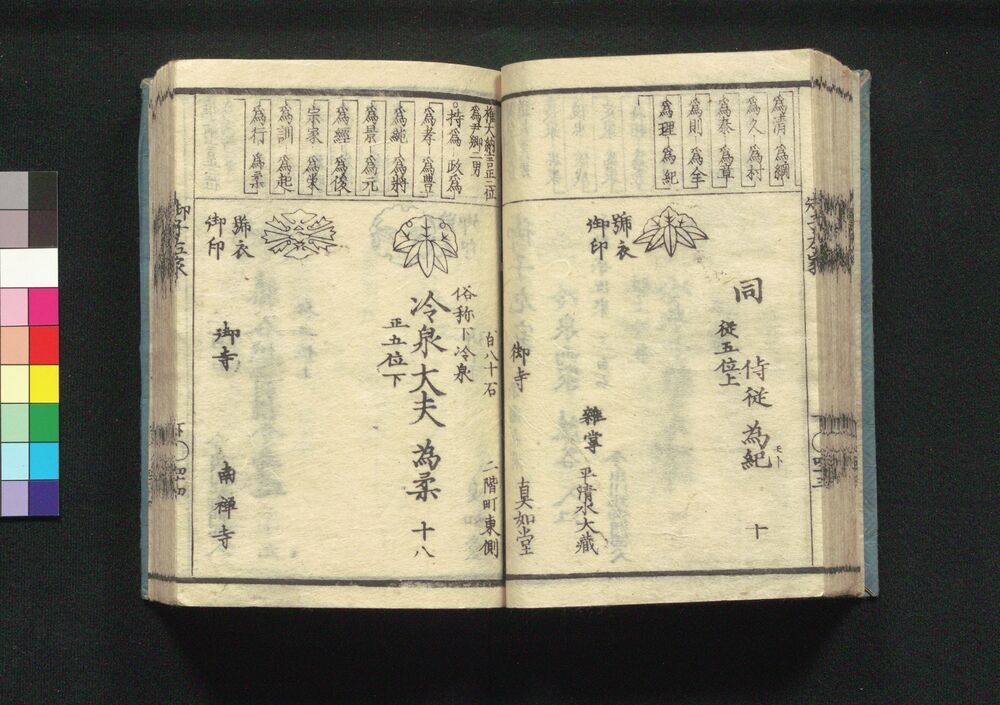 為清 為綱
為久 為村
為泰 為章
為則 為全
為理 為紀
同
従五位上
侍従 為紀
モト
十
號衣
御印
雜掌 平清水大藏
御寺 真如堂
權大納言正二位
為尹卿二男
持為 政為
為孝 為豊
為純 為將
為景 為元
為經 為俊
宗家 為栄
為訓 為起
為行 為柔
百八十石 二階町東側
俗称下冷泉
冷泉大夫 為柔 十八
正五位下
號衣
御印
御寺 南禅寺
御子左家
下 四十四